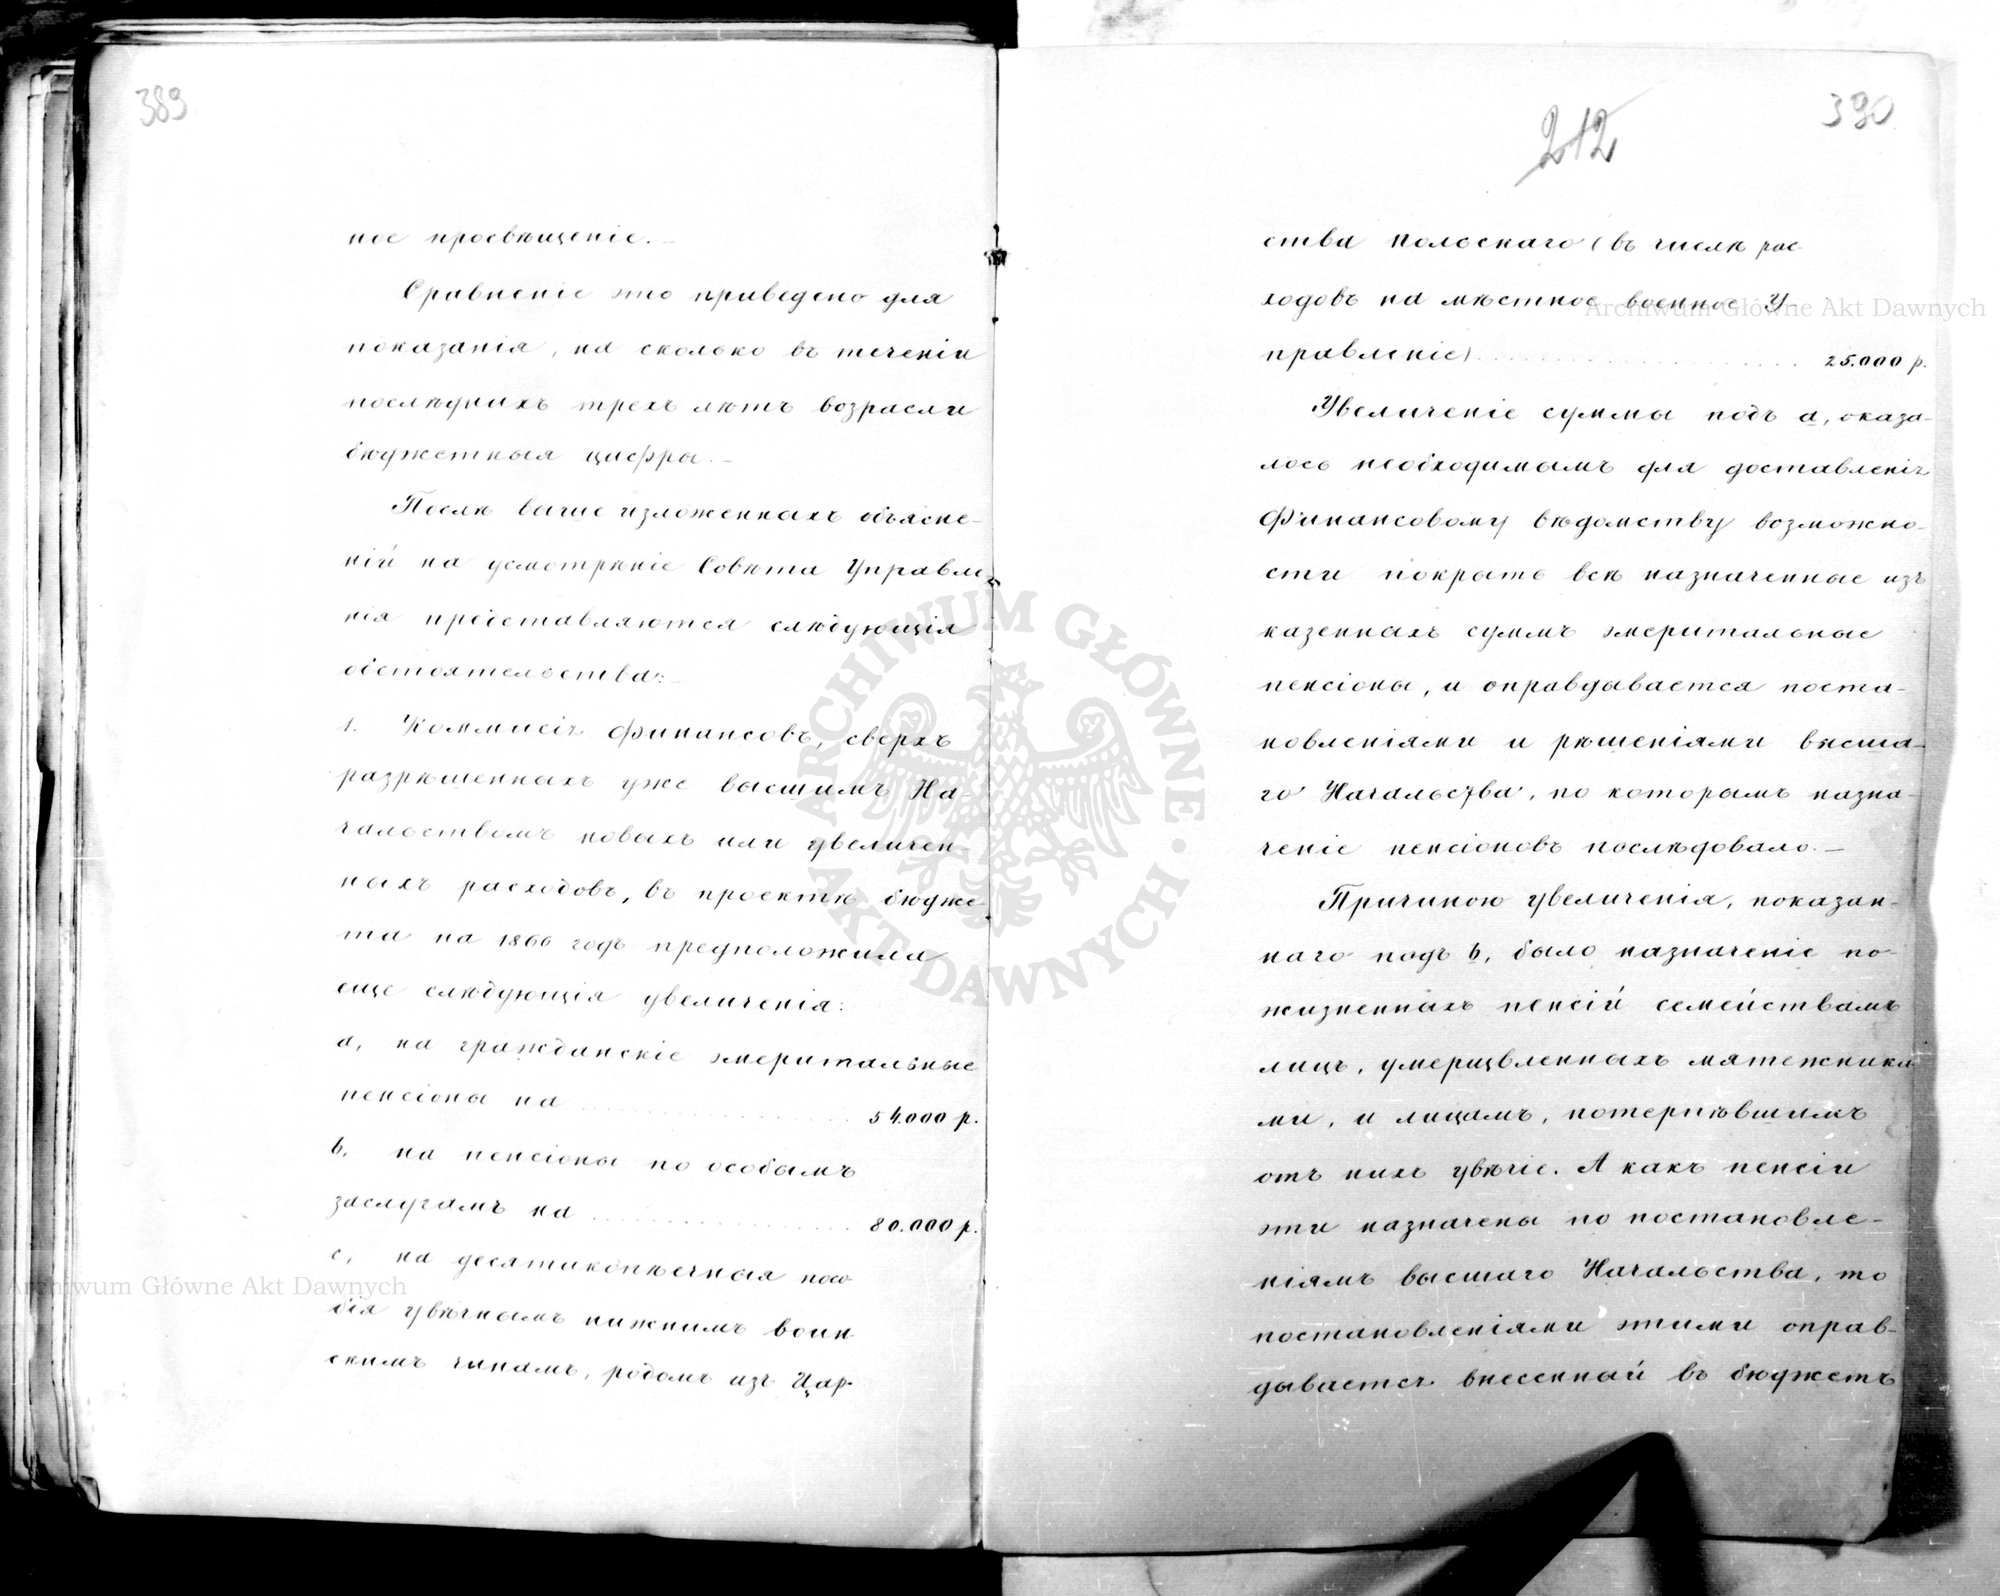 389
ное просвѣщеніе. —
Сравненіе это приведено для
показанія, на сколько въ теченіи
послѣднихъ трехъ лѣтъ возрасли
бюджетныя цифры. —
Послѣ выше изложенныхъ объясне-
ній на усмотрѣніе Совѣта Управле-
нія представляются слѣдующія
обстоятельства: —
1. Коммисія Финансовъ, сверхъ
разрѣшенныхъ уже высшимъ На-
чальствомъ новыхъ или увеличен-
ныхъ расходовъ, въ проектѣ бюдже-
та на 1866 годъ предположила
еще слѣдующія увеличенія:
a, на гражданскіе эмеритальные
пенсіоны на 54.000 р.
b, на пенсіоны по особымъ
заслугамъ на 80.000 р.
c, на десятикопѣечныя посо
бія увѣчнымъ нижнимъ воин
скимъ чинамъ, родомъ изъ Цар-
212
390
ства Польскаго (въ числѣ рас-
ходовъ на мѣстное военное У-
правленіе) 25.000 р.
Увеличеніе суммы подъ a, оказа-
лось необходимымъ для доставленія
Финансовому вѣдомству возможно-
сти покрыть всѣ назначенные изъ
казенныхъ суммъ эмеритальные
пенсіоны, и оправдывается поста-
новленіями и рѣшеніями высша-
го Начальства, по которымъ назна-
ченіе пенсіоновъ послѣдовало. —
Причиною увеличенія, показан-
наго подъ b, было назначеніе по-
жизненныхъ пенсій семействамъ
лицъ, умерщвленныхъ мятежника
ми, и лицамъ, потерпѣвшимъ
отъ нихъ увѣчіе. А какъ пенсіи
эти назначены по постановле-
ніямъ высшаго Начальства, то
постановленіями этими оправ-
дывается внесенный въ бюджетъ
Archiwum Główne Akt Dawnych
Archiwum Główne Akt Dawnych
ARCHIWUM GŁÓWNE AKT DAWNYCH